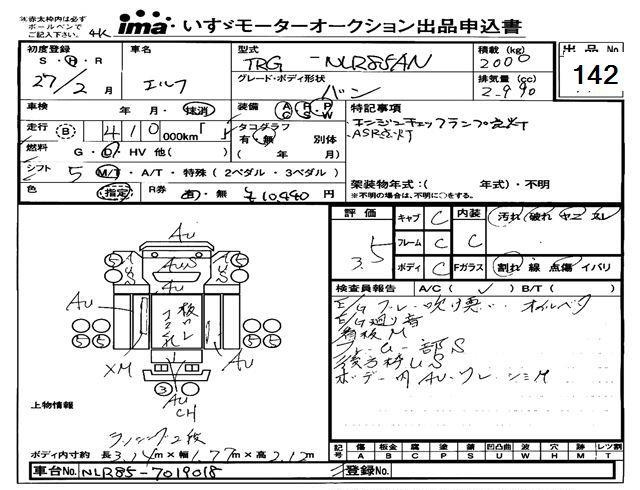 ※赤太枠内は必ず
ボールペンで
ご記入下さい。
4K
ima いすゞモーターオークション出品申込書
初度登録 S・H・R 27/2月
車名 エルフ
型式 TRG - NLR85AN
グレード・ボディ形状 バン
積載(kg) 2000
排気量(cc) 2990
出品No 142
車検 年・月・抹消
装備 A C P R P S W
走行 B 410 000km
タコグラフ 有・無 別体 ( 年 月)
燃料 G・D・HV 他( )
シフト 5 M/T・A/T・特殊(2ペダル・3ペダル)
色 指定
R券 有・無 ¥10,490円
特記事項
エンジンチェックランプ点灯
ASR点灯
架装物年式:( 年式)・不明
※不明の場合は、不明に○をする。
評価 3.5
キャブ C 内装 C 汚れ 破れ ヤニ スレ
フレーム C
ボディ C Fガラス 割れ 線 点傷 イバリ
検査員報告 A/C( ✓ ) B/T( )
E/G フレ 吹け悪 オイルベタ
E/G廻り音
看板M
フレーム一部S
後方枠US
ボデー内AU・ワレ・シミM
AU
AUS
AU
AU
AU
5
5
5
5
XM
3
AU
CH
上物情報
ラッシング2段
ボディ内寸約 長3.14m×幅1.77m×高2.12m
記号 傷 板金 腐 塗 錆 凹凸曲 波 穴 M レツ割
A B C P S U W H M T
車台No. NLR85-7019018
登録No.